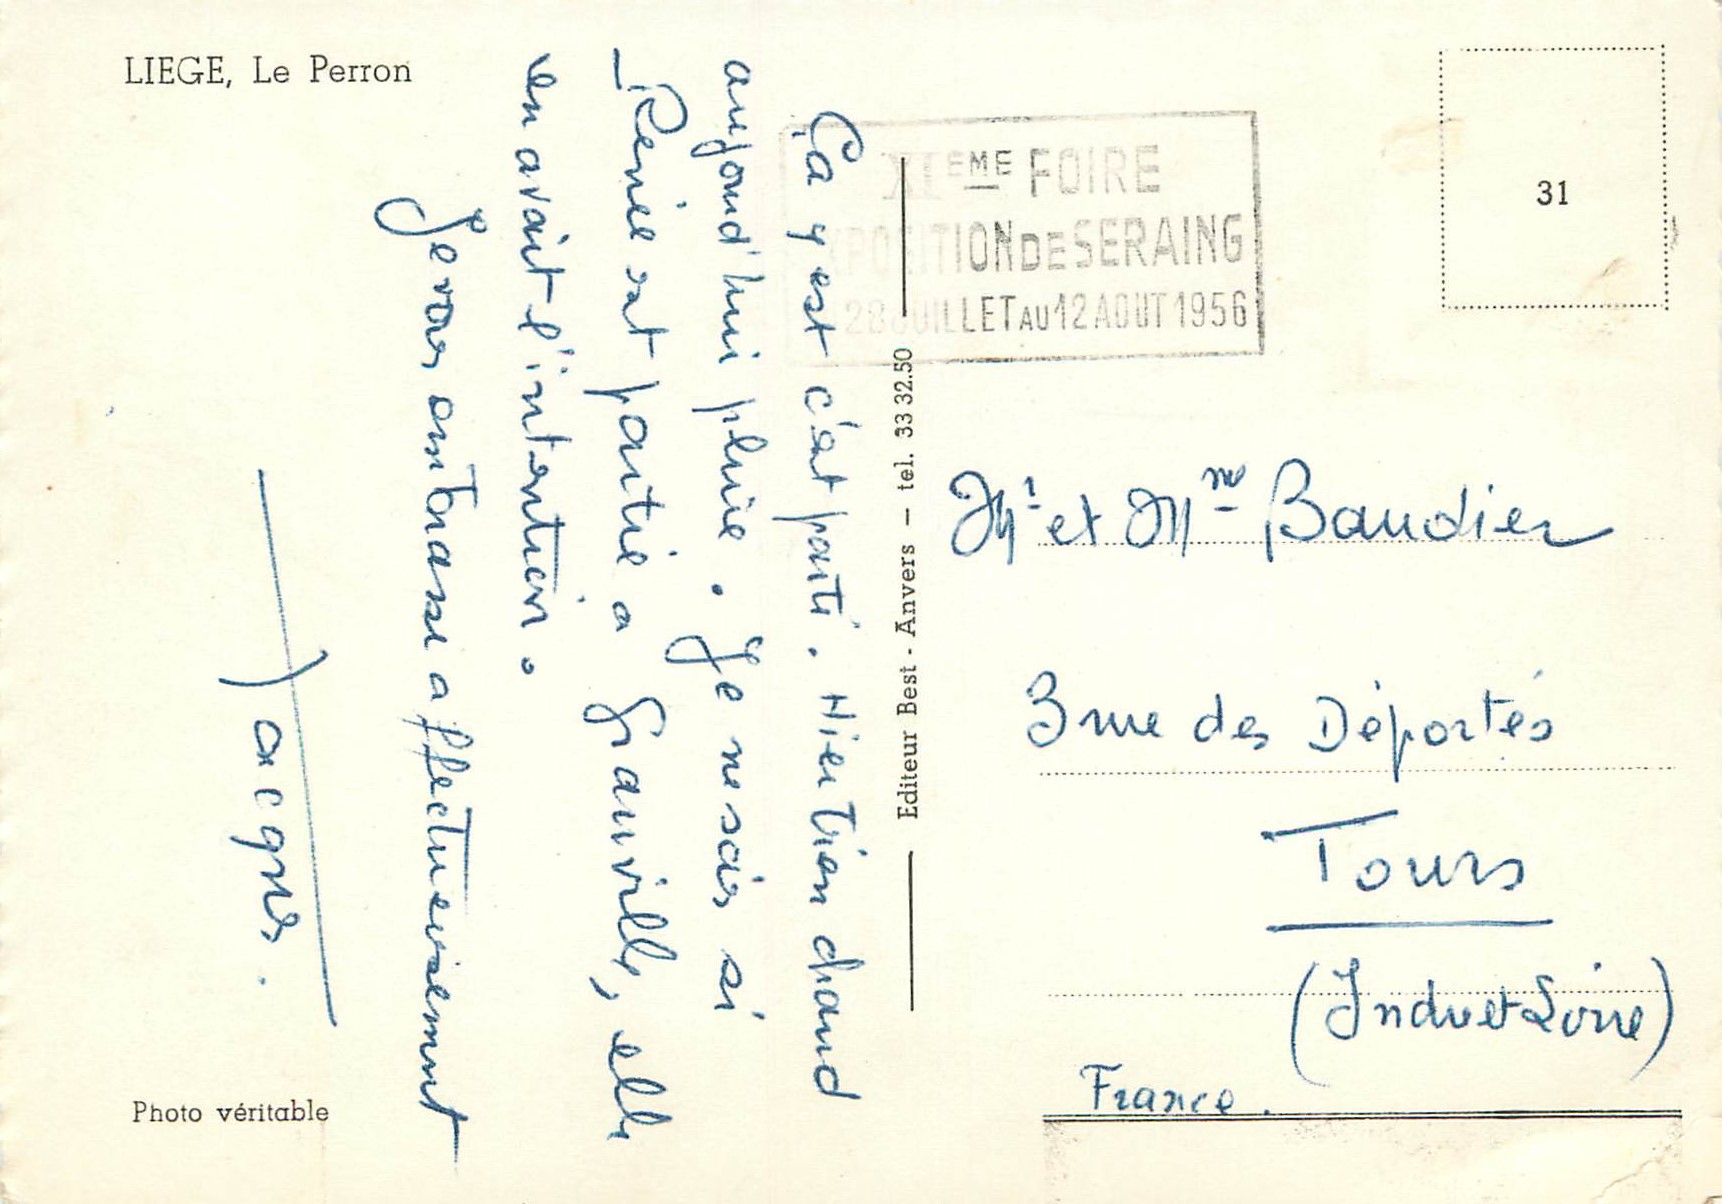 LIEGE, Le Perron
Ça y est c'est parti. Hier bien chaud
aujourd'hui pluie. Je ne sais si
Renée est partie à Granville, elle
en avait l'intention.
Je vous embrasse affectueusement
Jacques.
Photo véritable
Editeur Best - Anvers — tel. 33 32.50
XIEME FOIRE
EXPOSITION DE SERAING
28 JUILLET AU 12 AOUT 1956
31
Mr et Mme Baudier
3 rue des Déportés
Tours
(Indre et Loire)
France.